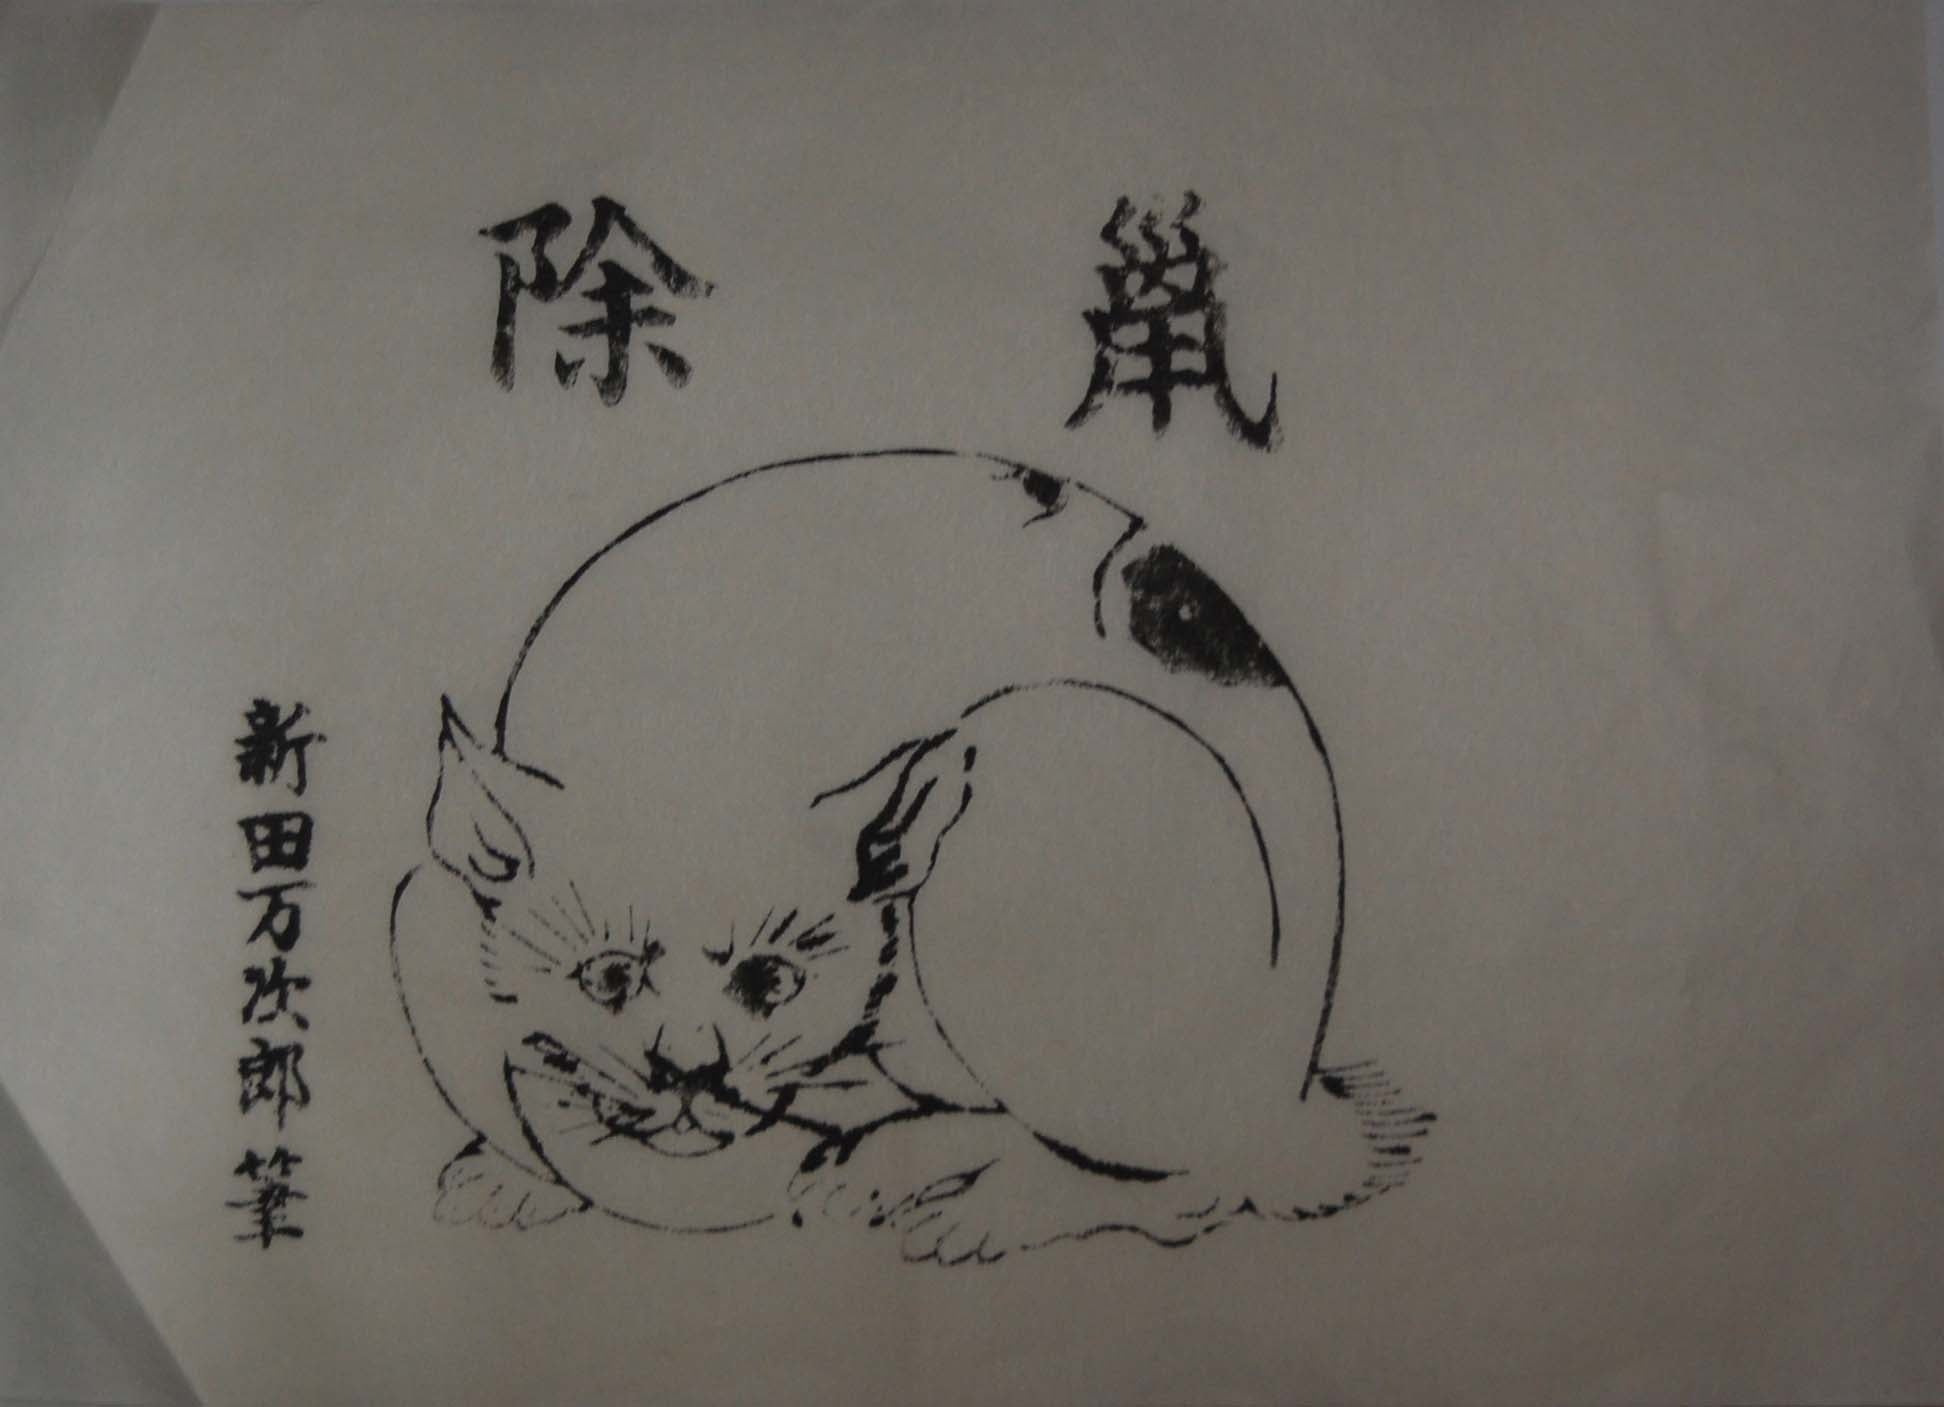 鼠除
新田万次郎筆